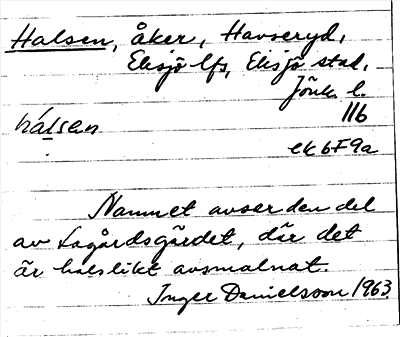 Halsen, åker, Havseryd,
Eksjö lfs, Eksjö stad,
Jönk. l.
116
hálsen
ek 6F9a
Namnet avser den del
av Lagårdsgärdet, där det
är halslikt avsmalnat.
Inger Danielsson 1963.